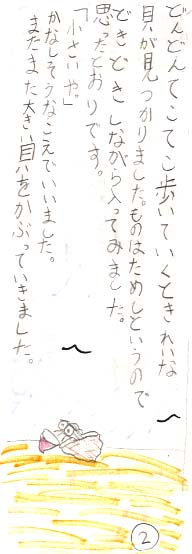 どんどんてこてこ歩いていくときれいな
貝が見つかりました。ものはためしというので
どきどきしながら入ってみました。
思ったとおりです。
「小さいや。」
かなしそうなこえでいいました。
またまた大きい貝をかぶっていきました。
2